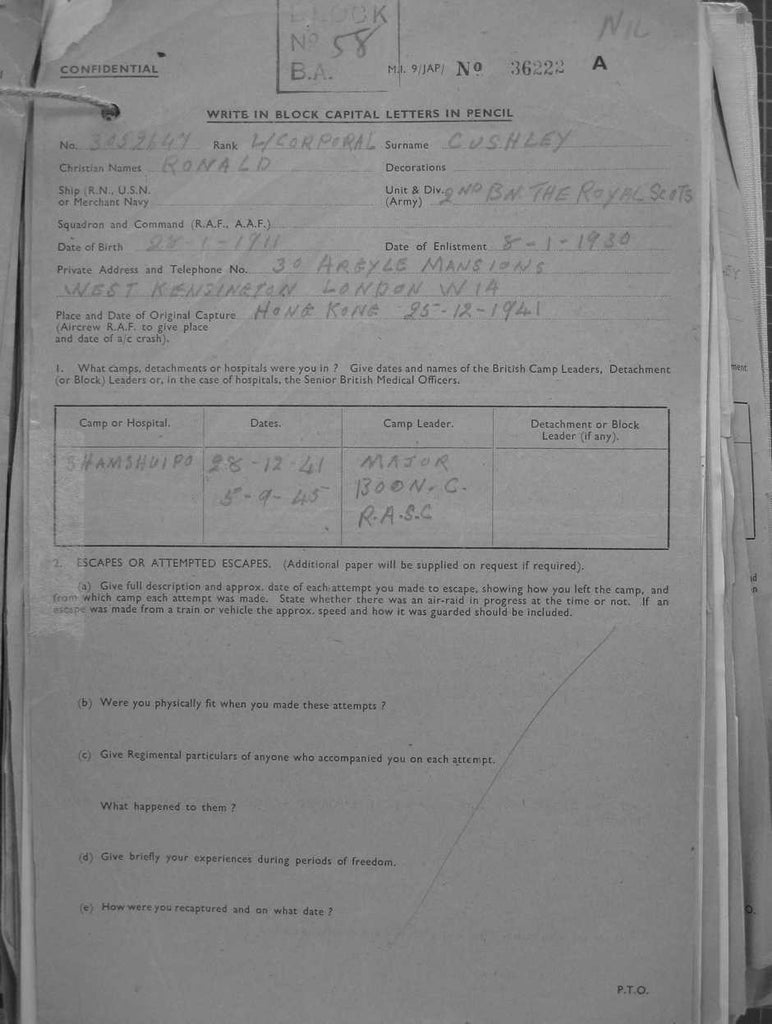 BLOCK
Nº 58
B.A.
NIL
CONFIDENTIAL
M.I. 9/JAP/ Nº 36222 A
WRITE IN BLOCK CAPITAL LETTERS IN PENCIL
No. 3052647 Rank L/CORPORAL Surname CUSHLEY
Christian Names RONALD Decorations
Ship (R.N., U.S.N. or Merchant Navy
Unit & Div. (Army) 2ND BN. THE ROYAL SCOTS
Squadron and Command (R.A.F., A.A.F.)
Date of Birth 28-1-1911 Date of Enlistment 8-1-1930
Private Address and Telephone No. 30 ARGYLE MANSIONS
WEST KENSINGTON LONDON W14
Place and Date of Original Capture HONG KONG 25-12-1941
(Aircrew R.A.F. to give place
and date of a/c crash).
1. What camps, detachments or hospitals were you in ? Give dates and names of the British Camp Leaders, Detachment
(or Block) Leaders or, in the case of hospitals, the Senior British Medical Officers.
Camp or Hospital. Dates. Camp Leader. Detachment or Block
Leader (if any).
SHAMSHUIPO 28-12-41 MAJOR
5-9-45 BOON. C.
R.A.S.C
2. ESCAPES OR ATTEMPTED ESCAPES. (Additional paper will be supplied on request if required).
(a) Give full description and approx. date of each attempt you made to escape, showing how you left the camp, and
from which camp each attempt was made. State whether there was an air-raid in progress at the time or not. If an
escape was made from a train or vehicle the approx. speed and how it was guarded should be included.
(b) Were you physically fit when you made these attempts ?
(c) Give Regimental particulars of anyone who accompanied you on each attempt.
What happened to them ?
(d) Give briefly your experiences during periods of freedom.
(e) How were you recaptured and on what date ?
P.T.O.